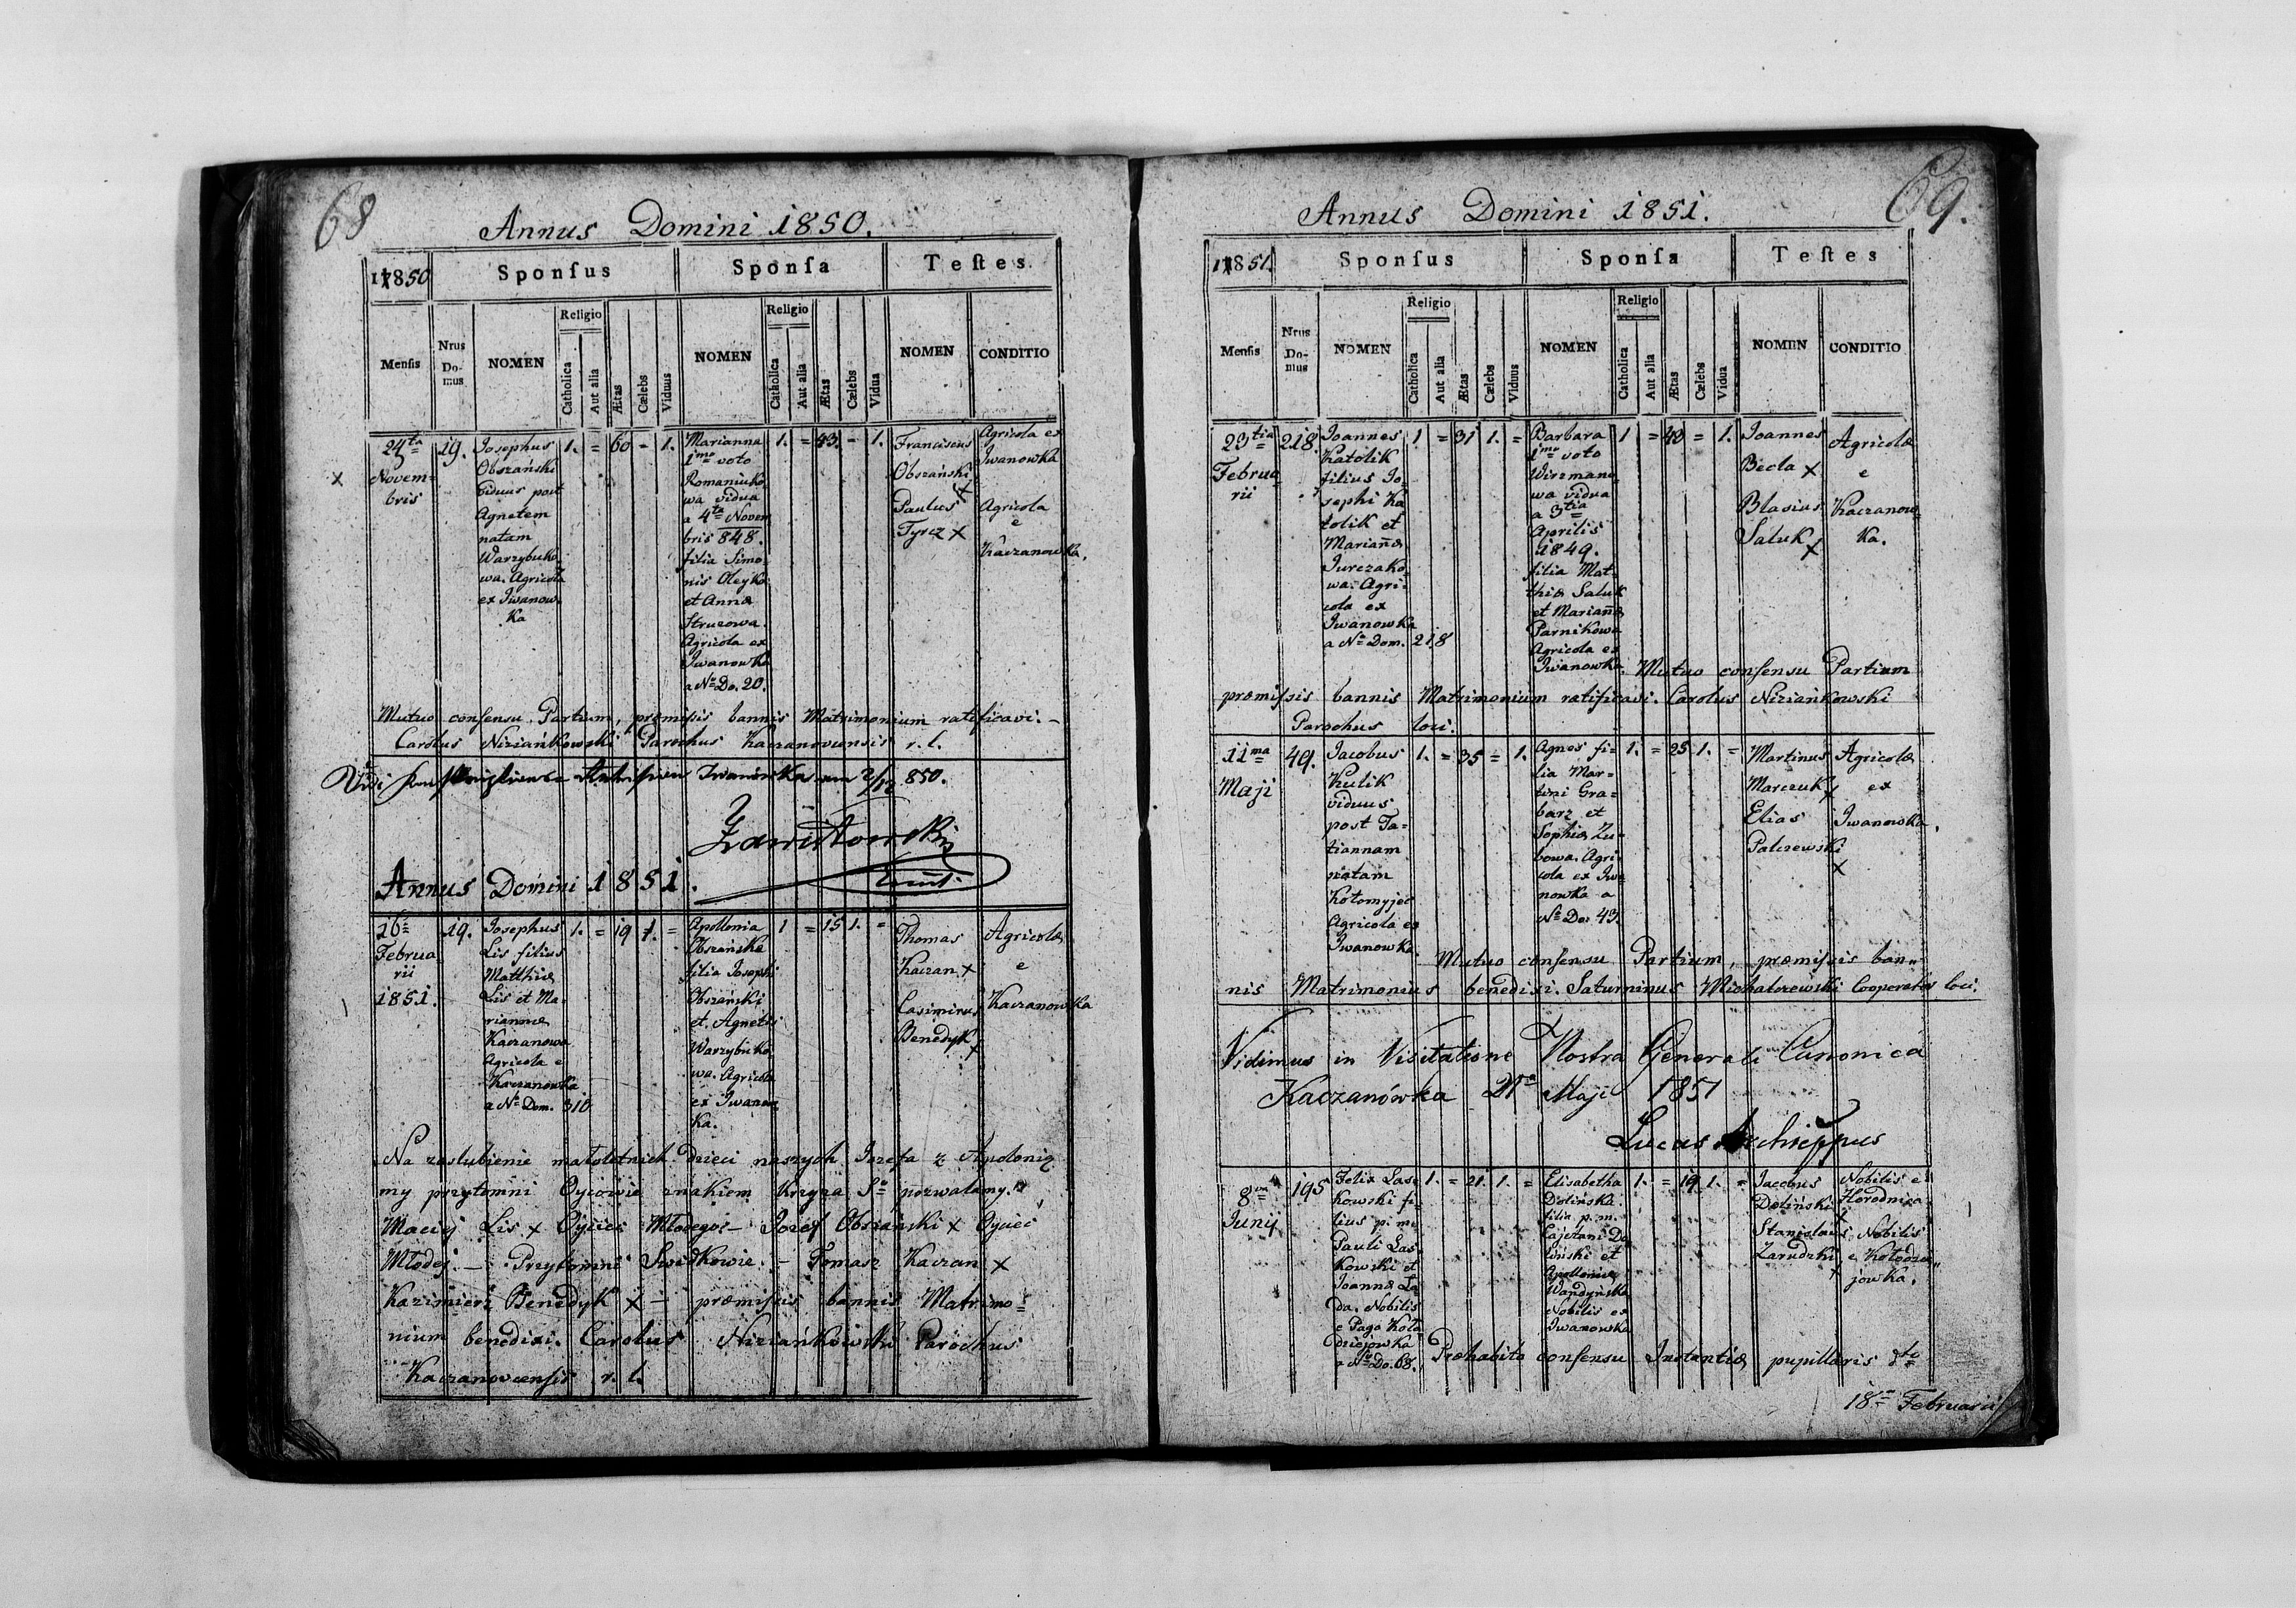 68
Annus Domini 1850.
1850
Sponsus
Sponsa
Testes
Mensis
Nrus Do-mus
NOMEN
Religio
Catholica
Aut alia
Ætas
Cælebs
Viduus
NOMEN
Religio
Catholica
Aut alia
Ætas
Cælebs
Vidua
NOMEN
CONDITIO
24ta
Novem=
bris
19.
Josephus
Obszański
viduus post
Agnetem
natam
Warzybuko
wa. Agricola
ex Iwanow
ka
1. = 60 = 1.
Marianna
1mo voto
Romaniuko
wa vidua
a 4ta Novem
bris 848.
filia Simo
nis Oleyko
et Annæ
Struzowa
Agricola ex
Iwanowka
a No Do. 20.
1. = 43 = 1.
Franciscus
Obszański
x
Paulus
Tyrcz x
Agricola ex
Iwanowka
Agricola
e
Kaczanowka.
Mutuo consensu Partium, præmissis bannis Matrimonium ratificavi. -
Carolus Niziańkowski Parochus Kaczanoviensis r. l.
850.
Annus Domini 1851.
16a
Februa
rii
1851.
19.
Josephus
Lis filius
Matthiæ
Lis et Ma-
riannæ
Kaczanowa
Agricola e
Kaczanowka
a No Dom. 310
1. = 19 1. =
Apollonia
Obszańska
filia Josephi
Obszański
et Agnetis
Warzybuko
wa. Agricola
ex Iwanow
ka.
1 = 15 1. =
Thomas
Kaczan x
Casimirus
Benedyk x
Agricolæ
e
Kaczanowka
Na zaslubienie małoletnich dzieci naszych Jozefa z Apolonią
my przytomni Oycowie znakiem krzyza So pozwalamy.
Maciej Lis x Oyciec Młodego - Jozef Obszański x Oyciec
Młodej. - Przytomni Swiadkowie: - Tomasz Kaczan x
Kazimierz Benedyk x - præmissis bannis Matrimo=
nium benedixi. Carolus Niziańkowski Parochus
Kaczanoviensis r. l.
69.
Annus Domini 1851.
1851.
Sponsus
Sponsa
Testes
Mensis
Nrus Do-mus
NOMEN
Religio
Catholica
Aut alia
Ætas
Cælebs
Viduus
NOMEN
Religio
Catholica
Aut alia
Ætas
Cælebs
Vidua
NOMEN
CONDITIO
23tia
Februa
rii
218.
Joannes
Katolik
filius Jo=
sephi Ka
tolik et
Mariannæ
Jurczako
wa. Agri=
cola ex
Iwanowka
a No Dom. 218
1 = 31 1. =
Barbara
1mo voto
Wizmano
wa vidua
a 3tia
Aprilis
1849.
filia Mat=
thiæ Saluk
et Mariannæ
Parnikowa
Agricola ex
Iwanowka.
1 = 40 = 1.
Joannes
Becla x
Blasius
Saluk x
Agricolæ
e
Kaczanow=
ka.
Mutuo consensu Partium
præmissis bannis Matrimonium ratificavi. Carolus Niziańkowski
Parochus loci.
11ma
Maji
49.
Jacobus
Kulik
viduus
post Ta=
tiannam
natam
Kołomyjec
Agricola ex
Iwanowka
1. = 35 = 1.
Agnes fi=
lia Mar=
tini Gra=
barz et
Sophiæ Zu=
bowa. Agri=
cola ex Iwa
nowka a
No Do. 43
1. = 25 1. =
Martinus
Marczuk x
Elias
Palczewski
x
Agricolæ
ex
Iwanowka.
Mutuo consensu Partium, præmissis ban=
nis Matrimonium benedixi. Saturninus Michalczewski Cooperator loci.
Vidimus in Visitatione Nostra Generali Canonica
Kaczanówka 21a Maji 1851
Lucas Archieppus
8va
Junij
195
Felix Las
kowski fi=
lius p. m.
Pauli Las
kowski et
Joannæ La
da. Nobilis
e Pago Koło
dziejowka
a No Do. 68.
1. = 21. 1. =
Elisabetha
Dolińska
filia p. m.
Cajetani Do
liński et
Apolloniæ
Wandyńska
Nobilis ex
Iwanowka
1. = 19 1. =
Jacobus
Doliński
x
Stanislaus
Zarudzki
x
Nobilis e
Horodnica
Nobilis
e Kołodzie=
jowka.
Præhabito consensu Instantiæ pupillaris dto
18a Februarii